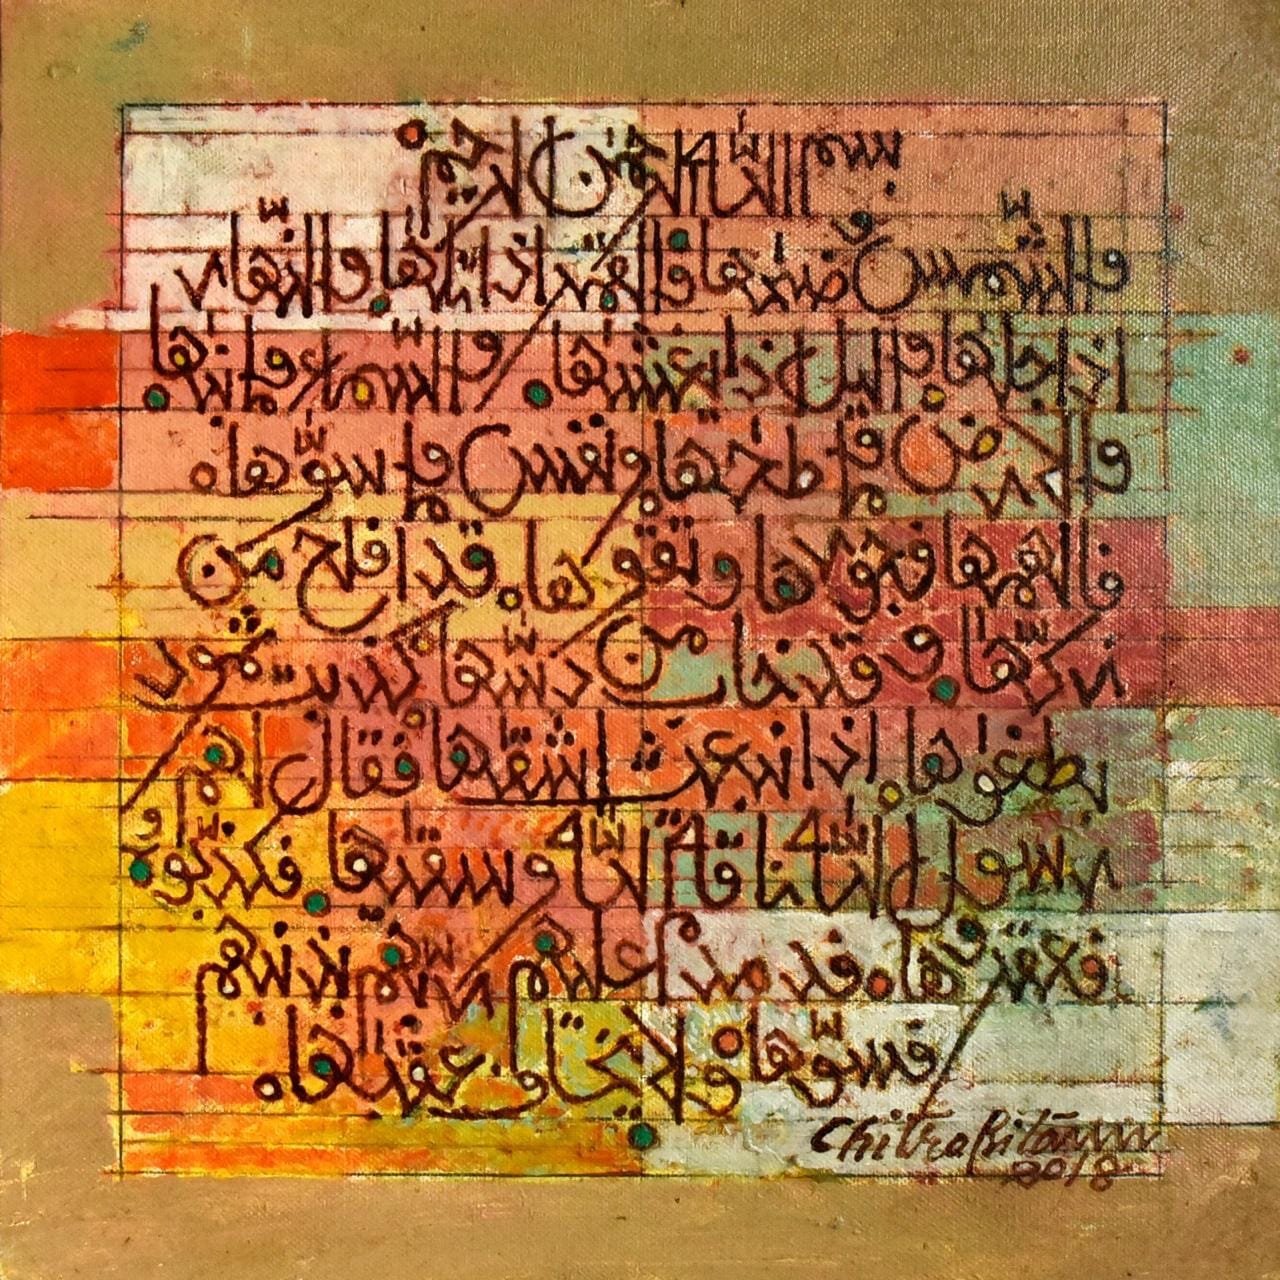 بسم الله الرحمن الرحيم
والشمس وضحها والقمر اذا تلها والنهار
اذا جلها واليل اذا يغشها والسماء وما بنها
والارض وما طحها ونفس وما سوها
فالهمها فجورها وتقوها قد افلح من
زكها وقد خاب من دسها كذبت ثمود
بطغوها اذ انبعث اشقها فقال لهم
رسول الله ناقة الله وسقيها فكذبوه
فعقروها فدمدم عليهم ربهم بذنبهم
فسوها ولا يخاف عقبها
ChitraRitann
2018